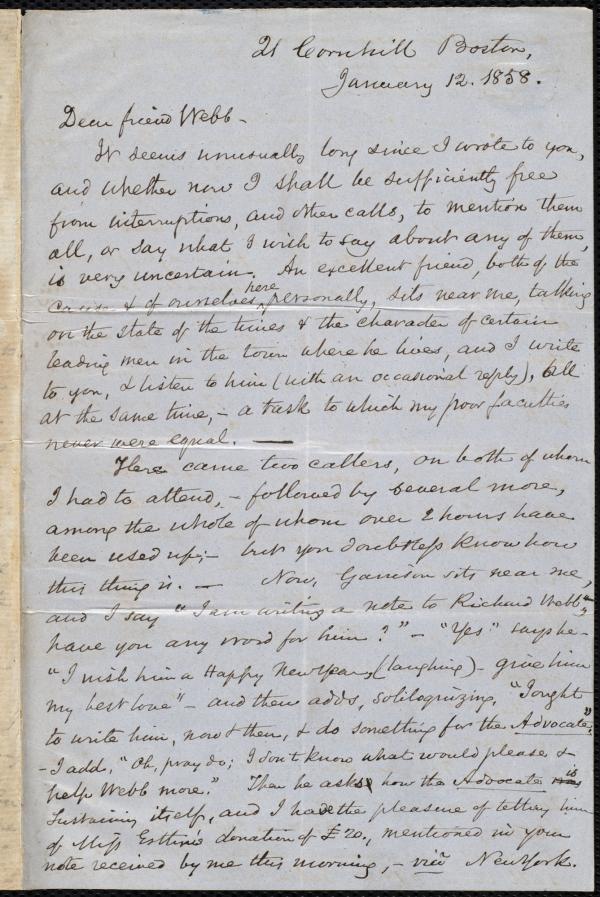 21 Cornhill Boston,
January 12. 1858.
Dear friend Webb -
It seems unusually long since I wrote to you,
and whether now I shall be sufficiently free
from interruptions, and other calls, to mention them
all, or say what I wish to say about any of them,
is very uncertain. An excellent friend, both of the
cause & of ourselves here personally, sits near me, talking
on the state of the times & the character of certain
leading men in the town where he lives, and I write
to you, & listen to him (with an occasional reply), all
at the same time, - a task to which my poor faculties
never were equal. —
Here came two callers, on both of whom
I had to attend, - followed by several more,
among the whole of whom over 2 hours have
been used up; - but you doubtless know how
this thing is. - Now, Garrison sits near me,
and I say "I am writing a note to Richard Webb,
have you any word for him?" - "Yes" says he -
"I wish him a Happy New Year, (laughing) - give him
my best love" - and then adds, soliloquizing, "I ought
to write him, now & then, & do something for the Advocate."
- I add, "Oh, pray do; I don't know what would please &
help Webb more." Then he asks how the Advocate is
sustaining itself, and I had the pleasure of telling him
of Miss Estlin's donation of £20., mentioned in your
note received by me this morning, - via New York.